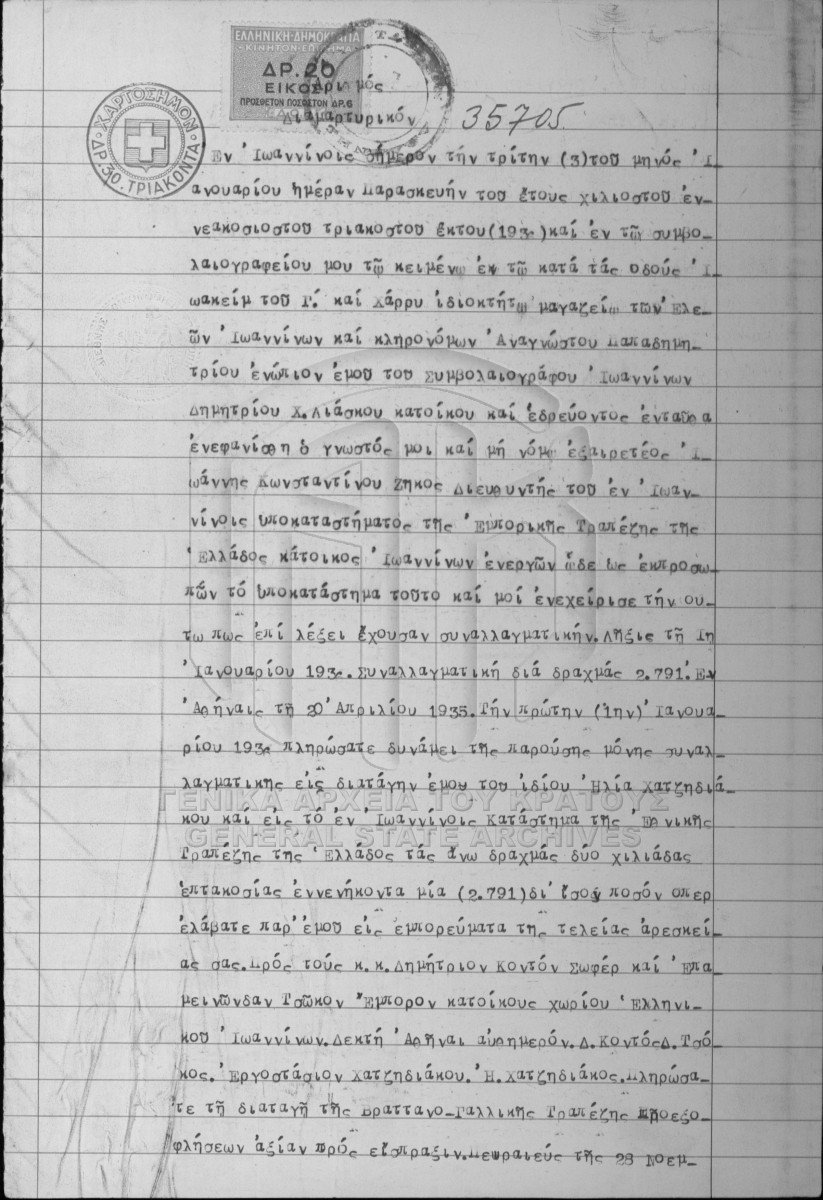 ΕΛΛΗΝΙΚΗ·ΔΗΜΟΚΡΑΤΙΑ
ΚΙΝΗΤΟΝ·ΕΠΙΣΗΜΑ
ΔΡ.20
ΕΙΚΟΣΙ
ΠΡΟΣΘΕΤΟΝ ΠΟΣΟΣΤΟΝ ΔΡ.6
ΧΑΡΤΟΣΗΜΟΝ
ΔΡ.30.ΤΡΙΑΚΟΝΤΑ
Ἀριθμός
Διαμαρτυρικόν 35705
Ἐν Ἰωαννίνοις σήμερον τήν τρίτην (3)τοῦ μηνός Ἰ-
ανουαρίου ἡμέραν Παρασκευήν τοῦ ἔτους χιλιοστοῦ ἐν-
νεακοσιοστοῦ τριακοστοῦ ἕκτου(193 )καί ἐν τῷ συμβο-
λαιογραφείου μου τῷ κειμένῳ ἐν τῷ κατά τάς ὁδούς Ἰ-
ωακείμ τοῦ Γ΄. καί Χάρρυ ἰδιοκτήτῳ μαγαζείῳ τῶν Ἐλε-
ῶν Ἰωαννίνων καί κληρονόμων Ἀναγνώστου Παπαδημη-
τρίου ἐνώπιον ἐμοῦ τοῦ Συμβολαιογράφου Ἰωαννίνων
Δημητρίου Χ.Λιάσκου κατοίκου καί ἑδρεύοντος ἐνταῦθα
ἐνεφανίσθη ὁ γνωστός μοι καί μή νόμῳ ἐξαιρετέος Ἰ-
ωάννης Κωνσταντίνου Ζήκος Διευθυντής τοῦ ἐν Ἰωαν-
νίνοις ὑποκαταστήματος τῆς Ἐμπορικῆς Τραπέζης τῆς
Ἑλλάδος κάτοικος Ἰωαννίνων ἐνεργῶν ὧδε ὡς ἐκπροσω-
πῶν τό ὑποκατάστημα τοῦτο καί μοί ἐνεχείρισε τήν οὕ-
τω πως ἐπί λέξει ἔχουσαν συναλλαγματικήν.Λῆξις τῇ 1ῃ
Ἰανουαρίου 193 .Συναλλαγματική διά δραχμάς 2.791.Ἐν
Ἀθήναις τῇ 20 Ἀπριλίου 1935.Τήν πρώτην (1ην) Ἰανουα-
ρίου 193 πληρώσατε δυνάμει τῆς παρούσης μόνης συναλ-
λαγματικῆς εἰς διαταγήν ἐμοῦ τοῦ ἰδίου Ἠλία Χατζηδιά-
κου καί εἰς τό ἐν Ἰωαννίνοις Κατάστημα τῆς Ἐθνικῆς
Τραπέζης τῆς Ἑλλάδος τάς ἄνω δραχμάς δύο χιλιάδας
ἑπτακοσίας ἐννενήκοντα μία (2.791)δι' ἴσον ποσόν ὅπερ
ἐλάβατε παρ' ἐμοῦ εἰς ἐμπορεύματα τῆς τελείας ἀρεσκεί-
ας σας.Πρός τούς κ.κ.Δημήτριον Κοντόν Σωφέρ καί Ἐπα-
μεινώνδαν Τσῶκον Ἔμπορον κατοίκους χωρίου Ἑλληνι-
κοῦ Ἰωαννίνων.Δεκτή Ἀθῆναι αὐθημερόν.Δ.ΚοντόςΔ.Τσό-
κος.Ἐργοστάσιον Χατζηδιάκου.Ἠ.Χατζηδιάκος.Πληρώσα-
τε τῇ διαταγῇ τῆς Βρεττανο-Γαλλικῆς Τραπέζης προεξο-
φλήσεων ἀξίαν πρός εἴσπραξιν.Πειραιεύς τῆς 28 Νοεμ-
ΓΕΝΙΚΑ ΑΡΧΕΙΑ ΤΟΥ ΚΡΑΤΟΥΣ
GENERAL STATE ARCHIVES